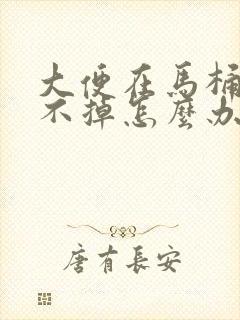 大便在馬桶
不掉怎麼办
唐有長安